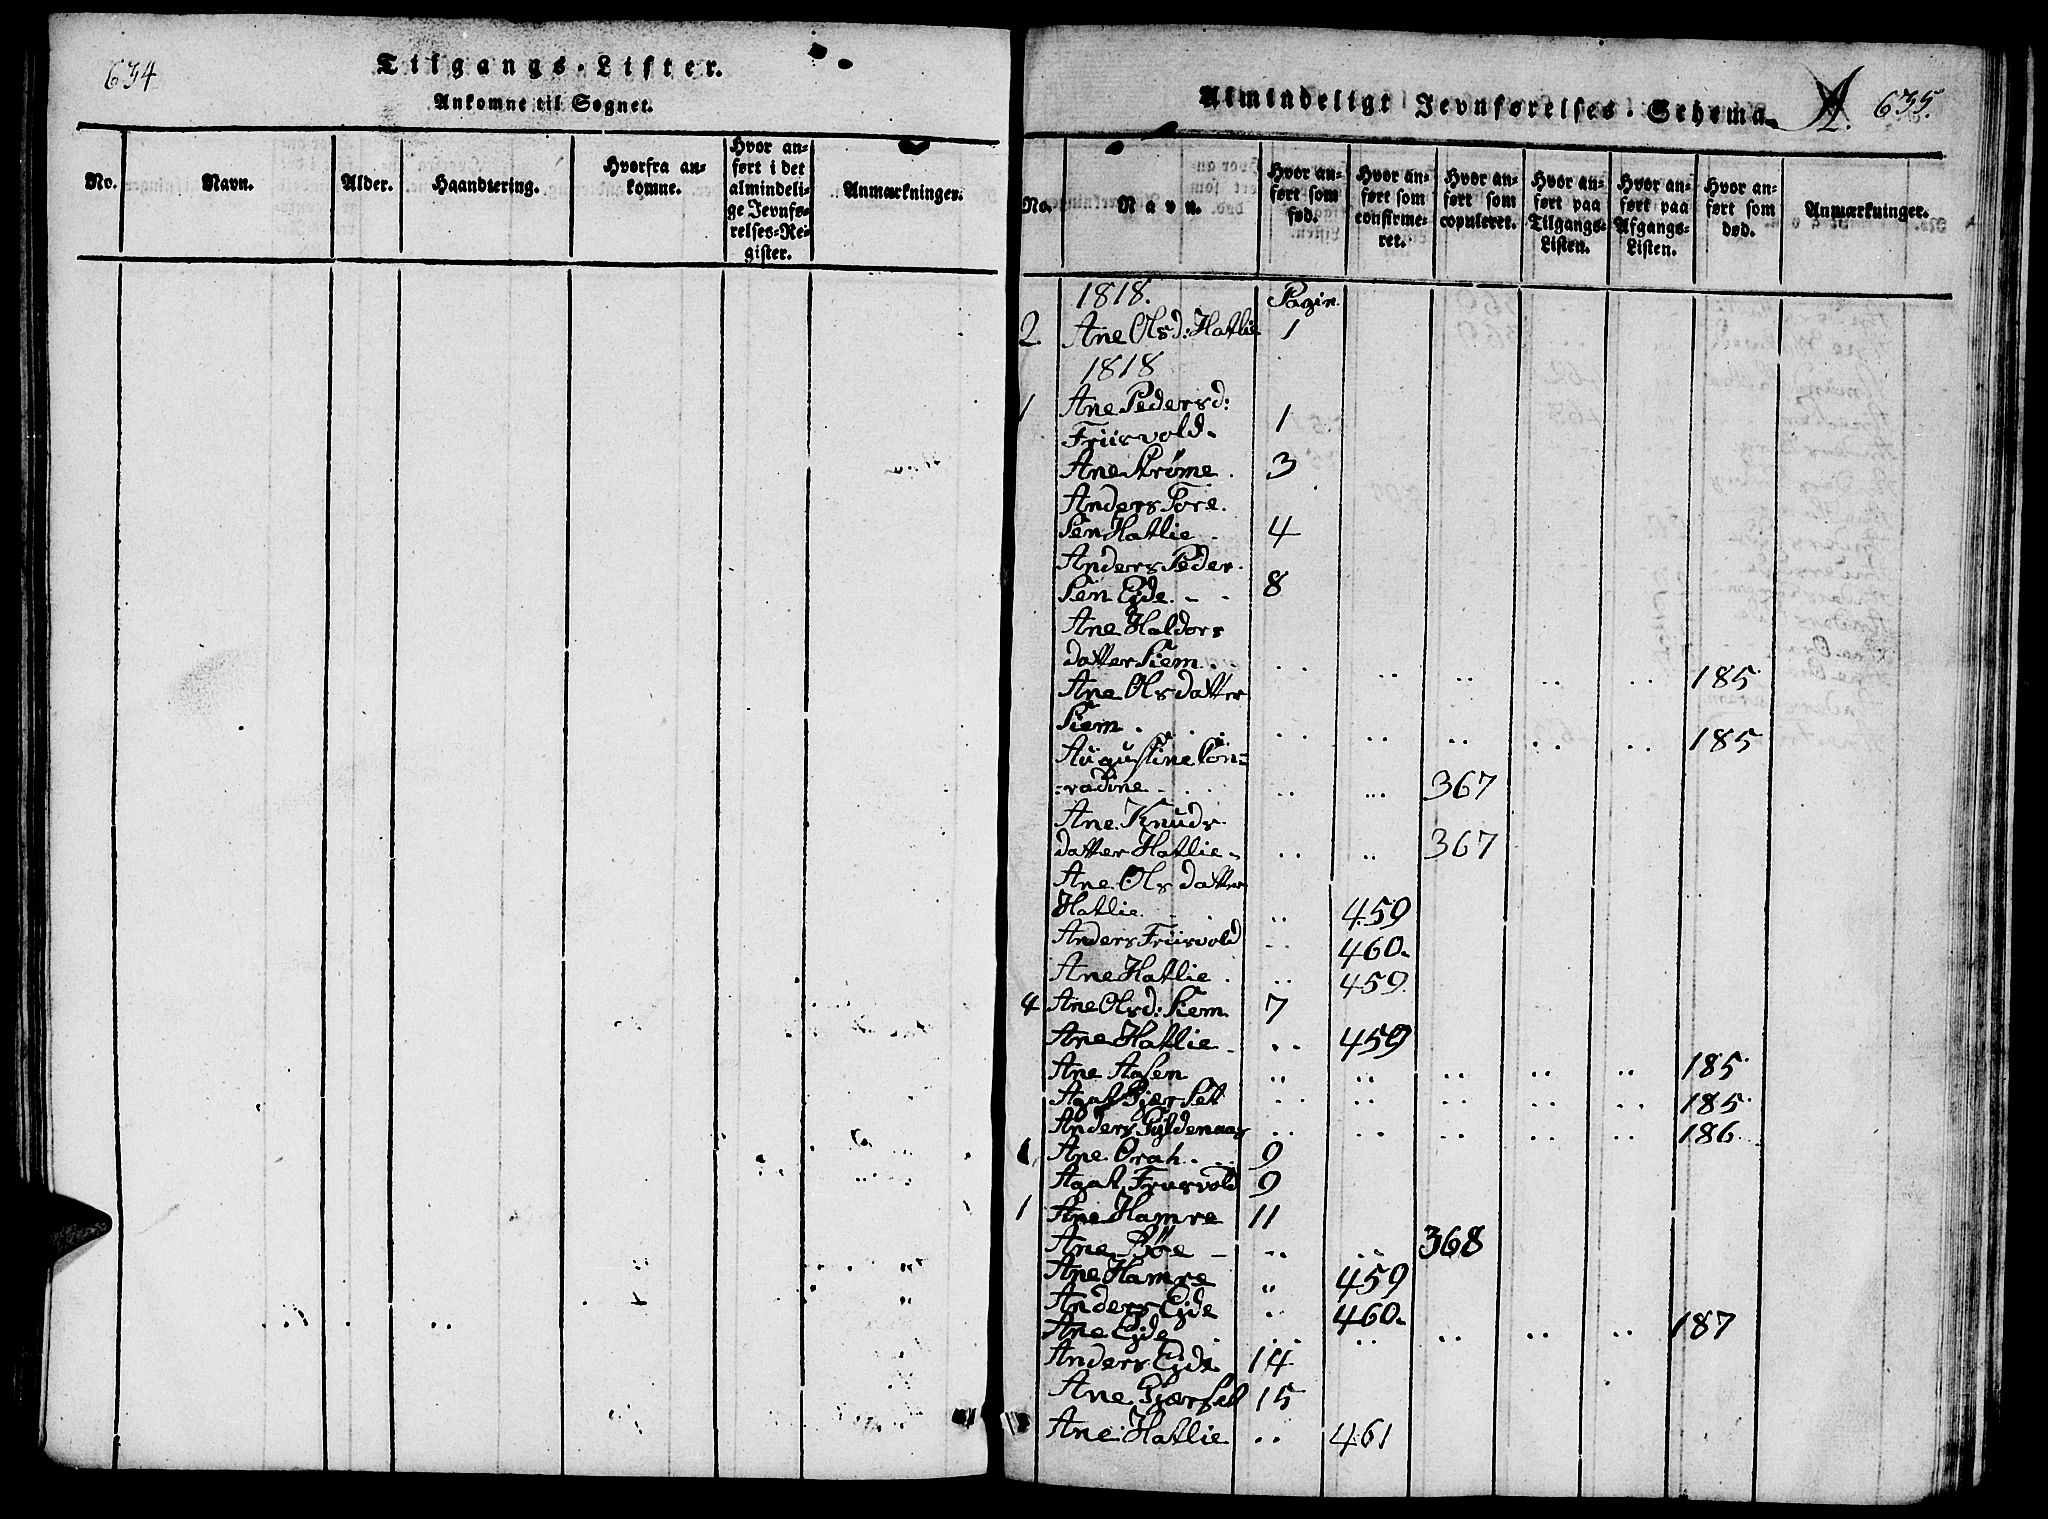 634
Tilgangs-Lister.
Ankomne til Sognet.
No.
Navn.
Alder.
Haandtering.
Hvorfra an-
komne.
Hvor an-
ført i det
almindeli-
ge Jevnfø-
relses-Re-
gister.
Anmærkninger.
Almindeligt Jevnførelses-Schema.
A.
635.
No.
Navn.
Hvor an-
ført som
fød.
Hvor an-
ført som
confirme-
ret.
Hvor an-
ført som
copuleret.
Hvor an-
ført paa
Tilgangs-
Listen.
Hvor an-
ført paa
Afgangs-
Listen.
Hvor an-
ført som
død.
Anmærkninger.
1818. Pagin.
2. Ane Olsd: Hatlie 1
1818
1 Ane Pedersd:
Friisvold. 1
Ane Strøme. 3
Anders Tore.
Sen Hatlie. 4
Anders Peder.
Sen Ejde. 8
Ane Haldors
datter Siem. 185
Ane Olsdatter
Siem. 185
Augustine Con=
=radine. 367
Ane Knuds.
datter Hatlie. 367
Ane Olsdatter
Hatlie. 459
Anders Friisvold 460.
Ane Hatlie. 459.
4 Ane Olsd: Siem 7
Ane Hatlie. 459
Ane Aasen 185.
Agat Gjærset 185.
Anders Gyldenaas 186.
1 Ane Orah. 9
Agat Friisvold 9
1 Ane Hamre 11
Ane Bøe 368
Ane Hamre 459
Anders Ejde 460.
Ane Ejde 187
Anders Ejde 14
Ane Gjærset 15
Ane Hatlie 461